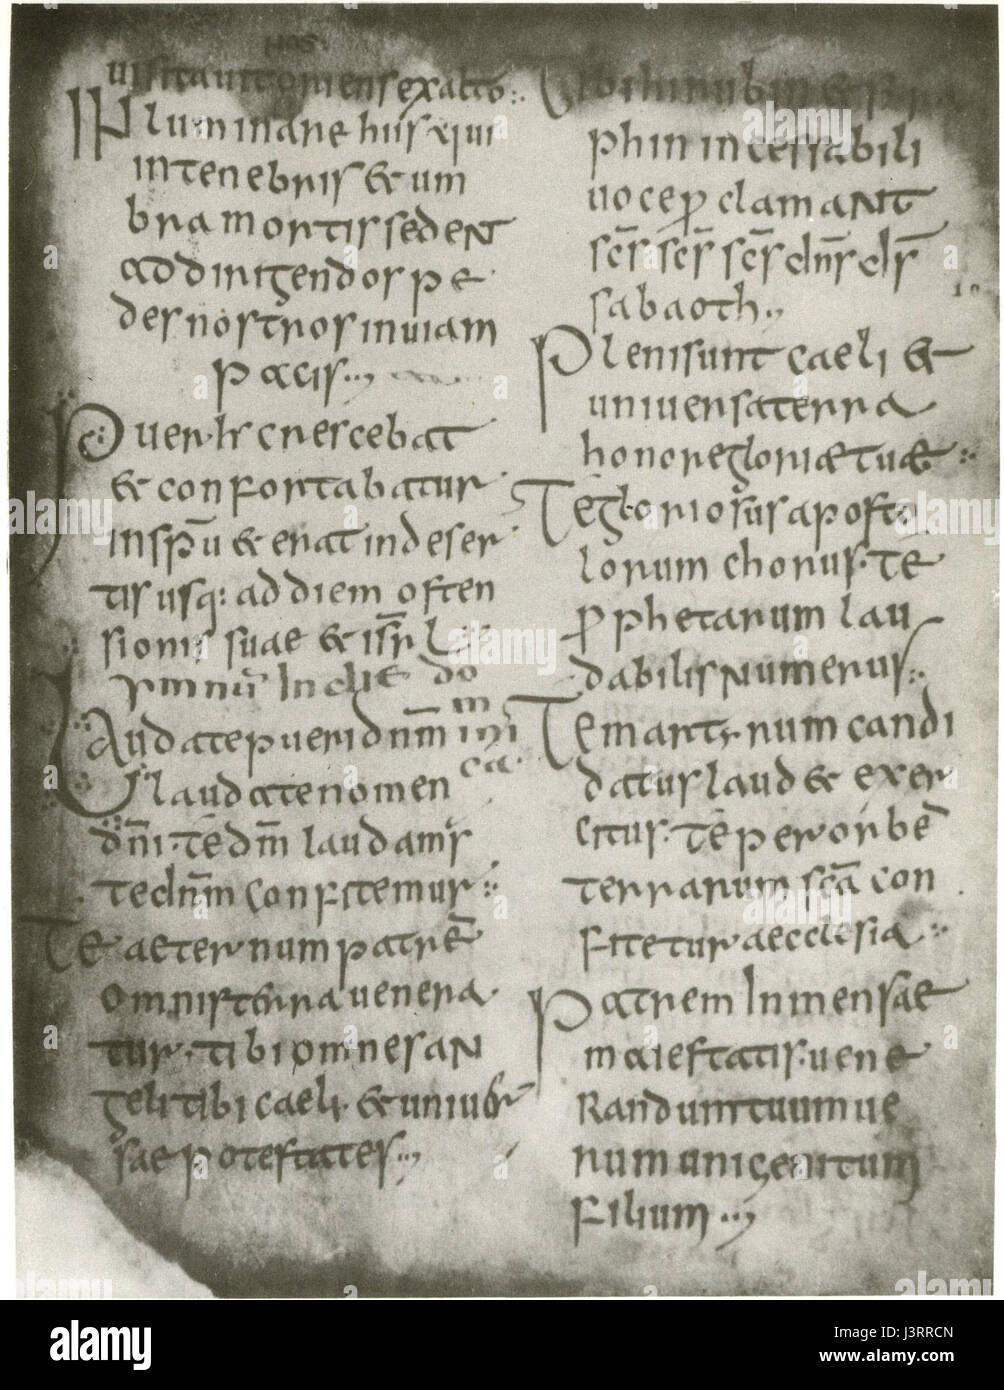 nos
uisitauit oriens ex alto
Inluminare his qui
in tenebris & um
bra mortis seden
ad dirigendos pe
des nostros in uiam
pacis
Puer hr crescebat
& confortabatur
in spū & erat in deser
tis usq: ad diem osten
sionis suae & isrl
Laudate pueri dnm
laudate nomen
dn̄i. te dm̄ laudam's
te dnm confitemur
Te aeternum patrē
omnis terra uenera
tur. tibi omnes an
geli tibi caeli & uniuer
sae potestates
Tibi hirubin & syra
phin incessabili
uoce ꝓclamant
scs̄ scs̄ scs̄ dn̄s ds̄
sabaoth
10
Pleni sunt caeli &
uniuersa terra
honore gloriae tuae
Te gloriosus aposto
lorum chorus. te
ꝓphetarum lau
dabilis numerus
Te martyrum candi
datus laud& exer
citus. te per orbē
terrarum scā con
fitetur aecclesia
Patrem inmensae
maiestatis. uene
randum tuum ue
rum unigenitum
filium
alamy
Image ID: J3RRCN
www.alamy.com